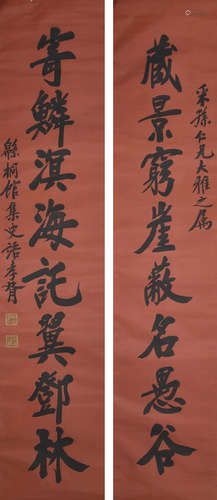 采孫仁兄大雅之属
藏景窮崖蔽名愚谷
寄鱗溟海託翼鄧林
緜桐館集史語